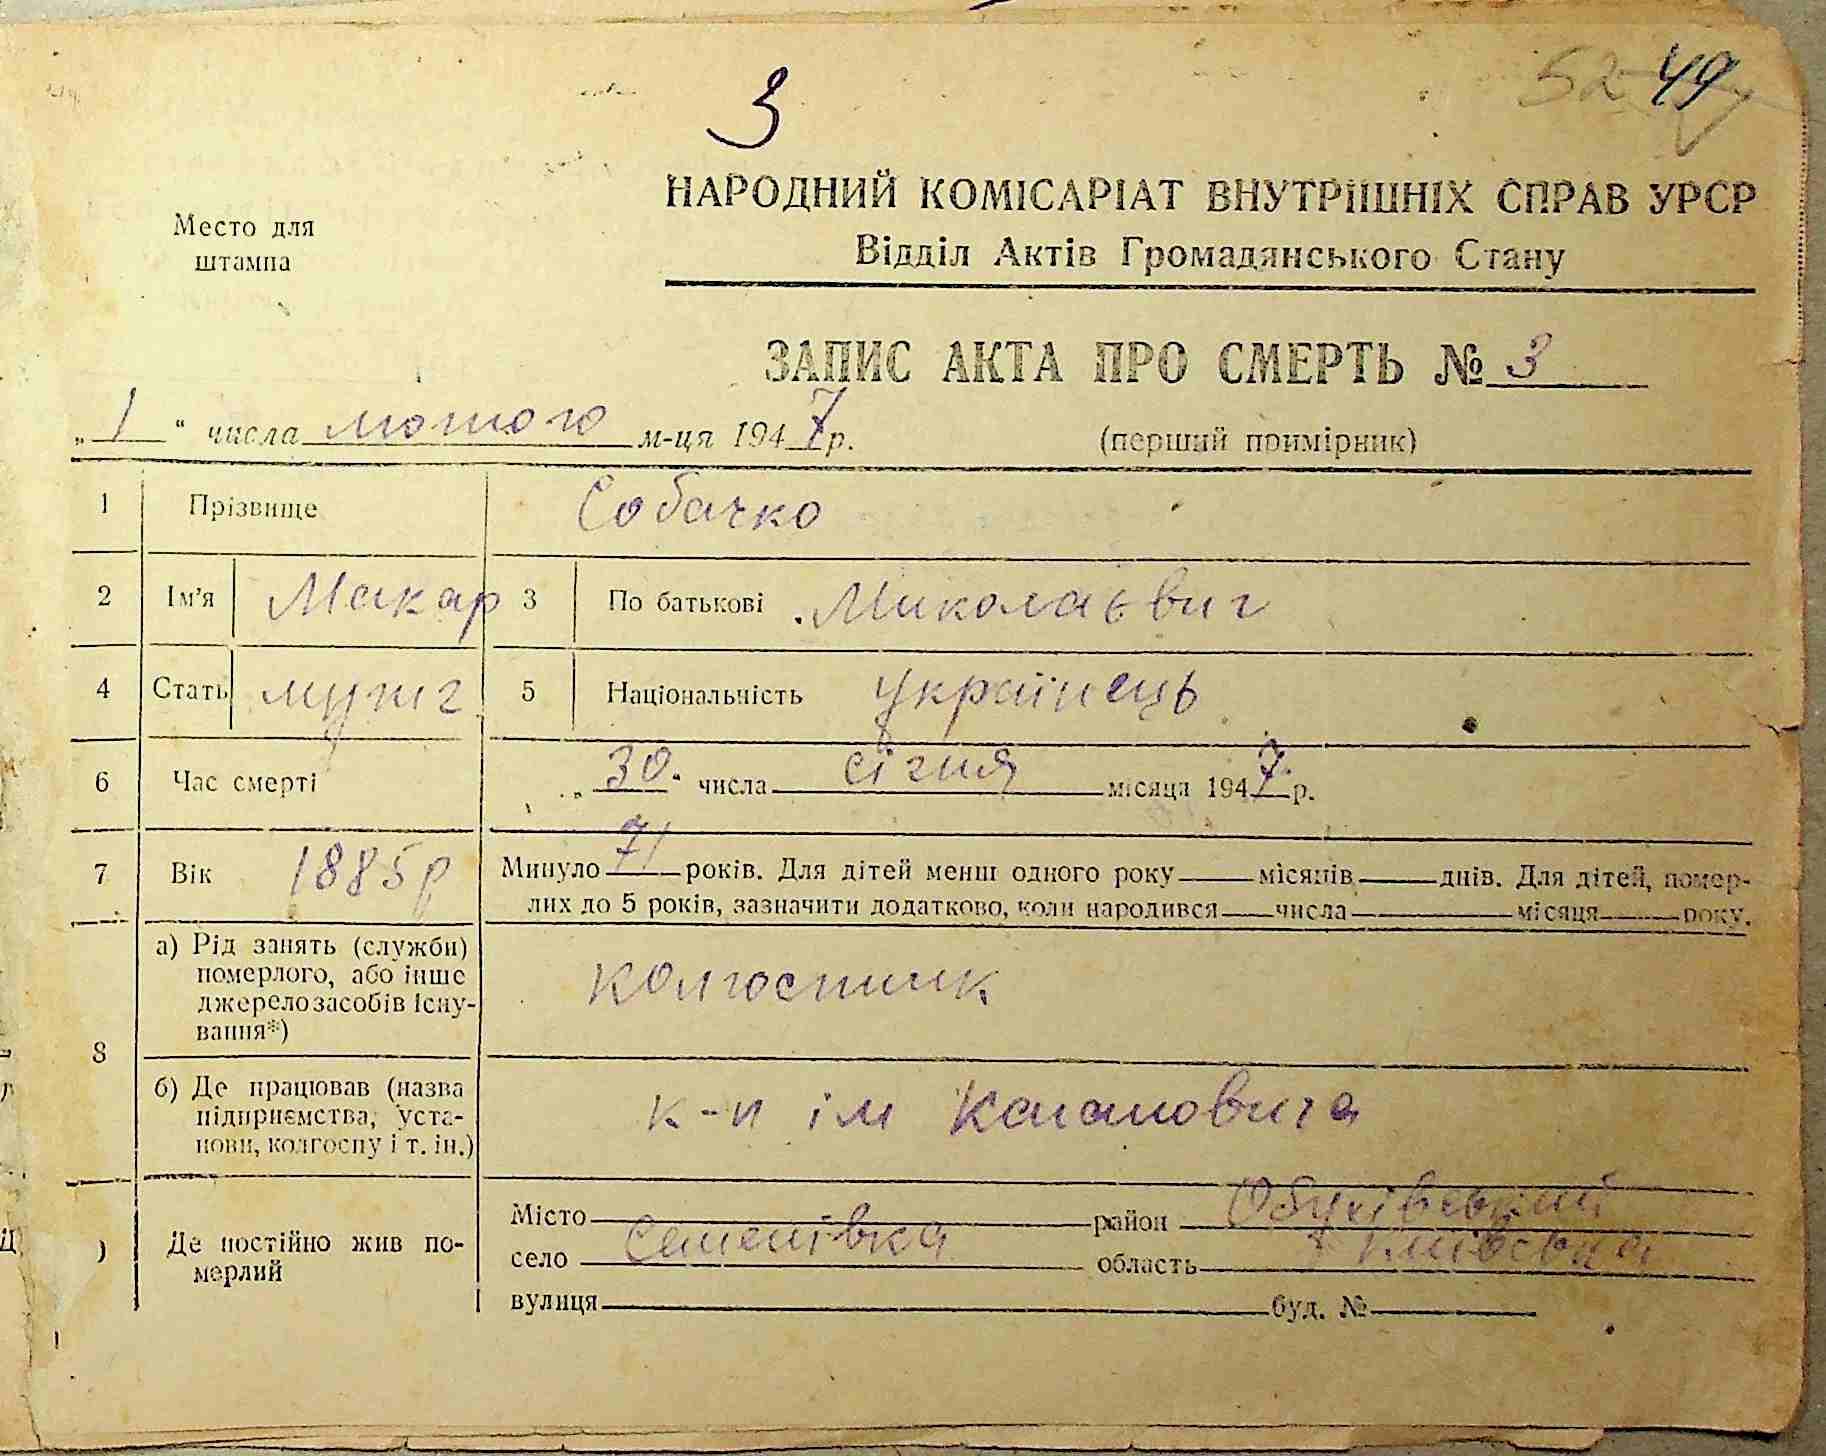 3
52 49
Место для
штампа
НАРОДНИЙ КОМІСАРІАТ ВНУТРІШНІХ СПРАВ УРСР
Відділ Актів Громадянського Стану
ЗАПИС АКТА ПРО СМЕРТЬ № 3
„ 1 “ числа лютого м-ця 1947 р. (перший примірник)
1 Прізвище Собачко
2 Ім'я Макар 3 По батькові Миколаєвич
4 Стать мужч 5 Національність українець
6 Час смерті „ 30 “ числа січня місяця 1947 р.
7 Вік 1885р Минуло 71 років. Для дітей менш одного року місяців днів. Для дітей, помер-
лих до 5 років, зазначити додатково, коли народився числа місяця року.
8 а) Рід занять (служби)
померлого, або інше
джерело засобів існу-
вання*)
колгоспник
б) Де працював (назва
підприємства, уста-
нови, колгоспу і т. ін.)
к-п ім Кагановича
) Де постійно жив по-
мерлий
Місто район Обухівський
село Семенівка область Київська
вулиця буд. №